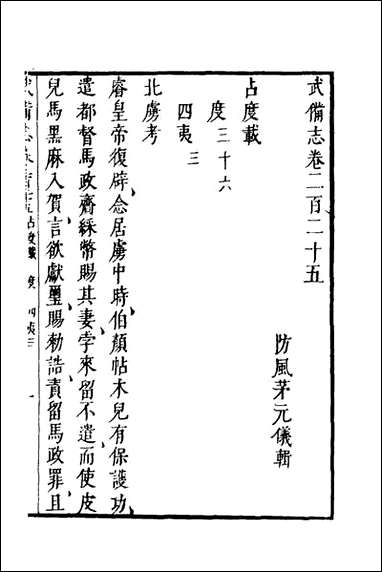 武備志卷二百二十五
防風茅元儀輯
占度載
度三十六
四夷三
北虜考
睿皇帝復辟、念居虜中時、伯顏帖木兒有保護功、
遣都督馬政齎綵幣賜其妻、孛來留不遣、而使皮
兒馬黑麻入賀、言欲獻璽、賜勅誥、責留馬政罪、且
占度載 度 四夷三 一